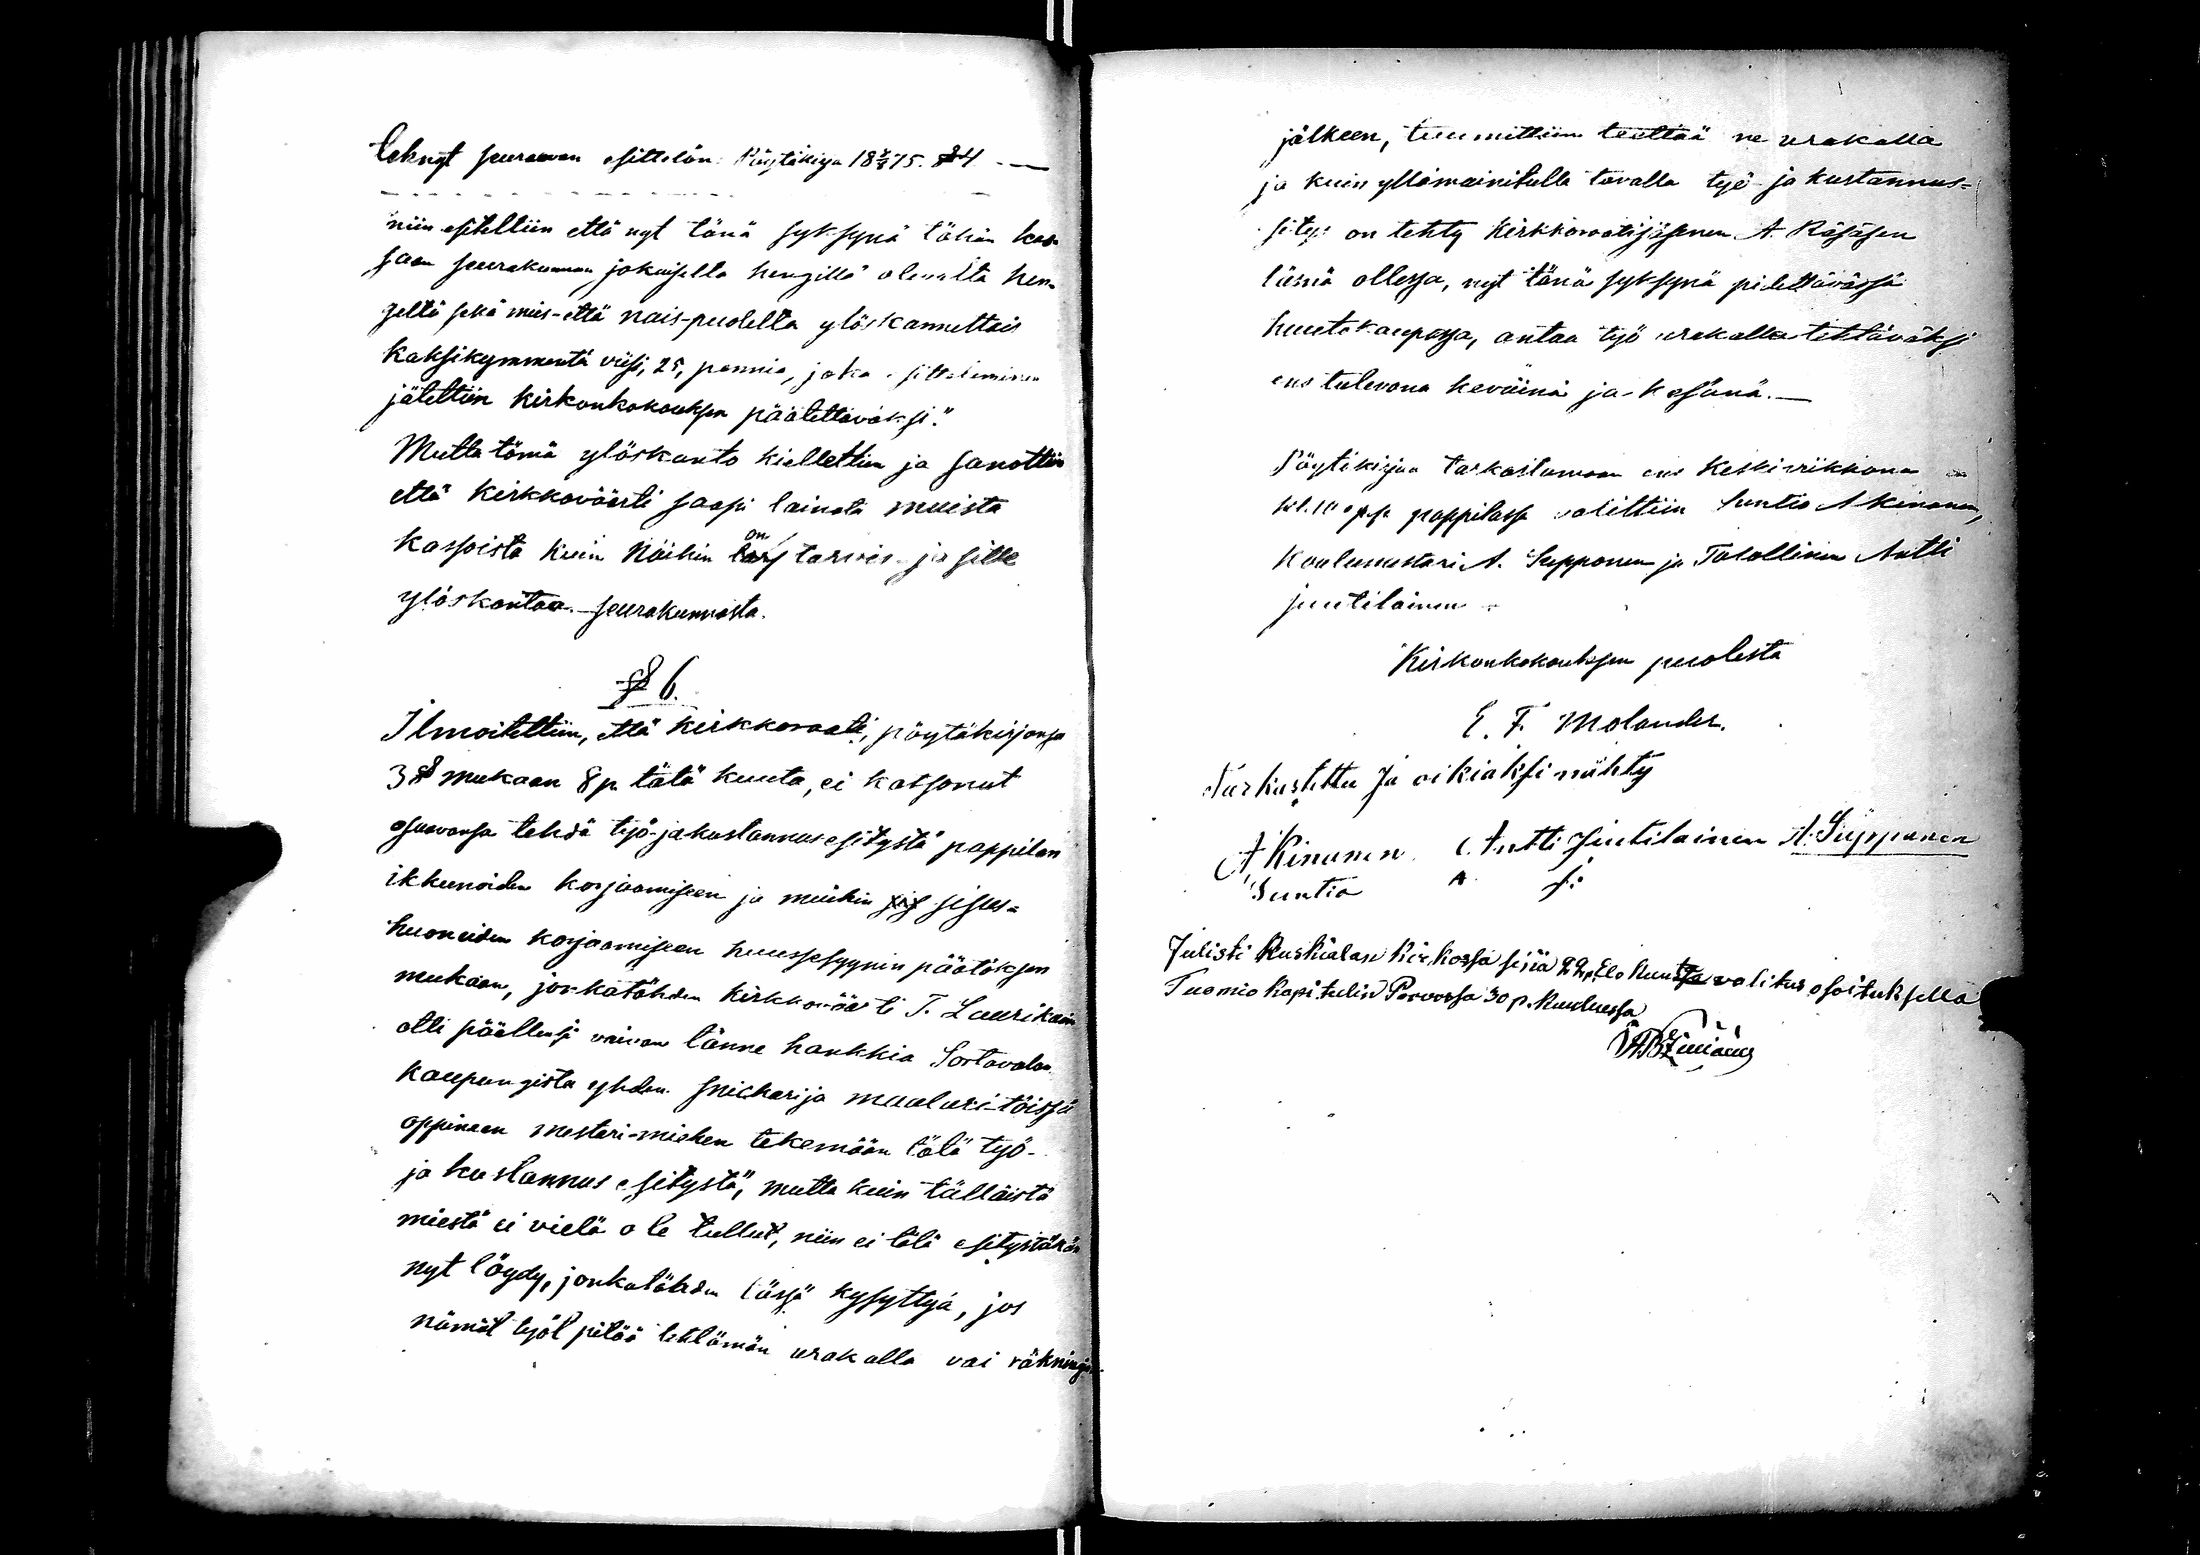 teknyt seuraavan esittelön: Pöytäkirja 18 8/8 75. § 4 —
niin esiteltiin että nyt tänä syksynä tähän kas-
saan seurakunnan jokaiselta hengillä olevalta hen-
geltä sekä mies-että nais-puolelta ylöskannettais
kaksikymmentä viisi, 25, pennia, joka esitteleminen
jätettiin kirkonkokouksen päätettäväksi."
Mutta tämä ylöskanto kiellettiin ja sanottiin
että kirkkoväärti saapi lainata muista
kassoista kuin näihin on tarvis ja sille
ylöskantaa seurakunnasta.
§ 6.
Ilmoitettiin, että kirkkoraati, pöytäkirjansa
3 § mukaan 8 p. tätä kuuta, ei katsonut
osaavansa tehdä työ-ja kustannus esitystä pappilan
ikkunoiden korjaamiseen ja muihin sisus-
huoneiden korjaamiseen huussesyynin päätöksen
mukaan, jonkatähden kirkkoväärti T. Laurikain
otti päällensä vaivan tänne hankkia Sortavalan
kaupungista yhden snickari ja maalari-töissä
oppineen mestari-miehen tekemään tätä työ-
ja kustannus esitystä", mutta kuin tälläistä
miestä ei vielä ole tullut, niin ei tätä esitystäkän
nyt löydy, jonkatähden tässä kysyttyä, jos
nämät työt pitää tehtämän urakalla vai räkningin
jälkeen, tuumittiin teettää ne urakalla
ja kuin yllämainitulla tavalla työ- ja kustannus-
esitys on tehty kirkkoraatijäsenen A. Räsäsen
läsnä ollessa, nyt tänä syksynä pidettävässä
huutokaupassa, antaa työ urakalla tehtäväksi
ens tulevana keväinä ja kesänä.—
Pöytäkirjaa tarkastamaan ens keskiviikkona
kl. 10 e.p.p. pappilassa valittiin Suntio A Kinanen,
Koulumestari A. Supponen ja Talollinen Antti
Juutilainen
Kirkonkokouksen puolesta
E. F. Molander.
Tarkastettu Ja oikiaksi nähty
A Kinanen Antti Juutilainen A. Supponen
Suntio
Julisti Ruskialan Kirkossa sinä 22 p. Elo kuuta valitus osoituksella
Tuomio Kapitulin Porvoossa 30 p. kuuluessa